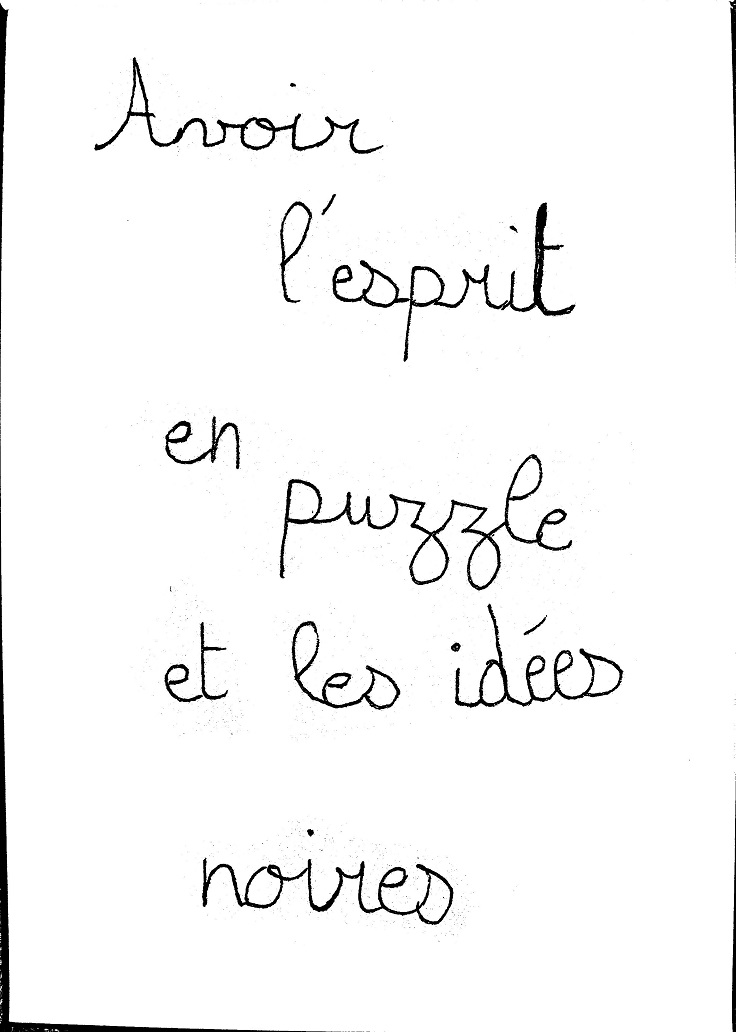 Avoir
l'esprit
en
puzzle
et les idées
noires